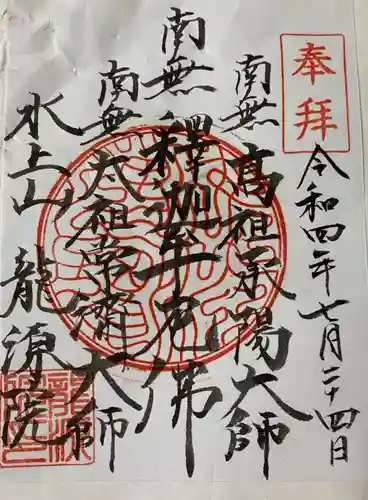 奉拝
令和四年七月二十四日
南無高祖承陽大師
南無釋迦牟尼佛
南無太祖常濟大師
水上山龍源院